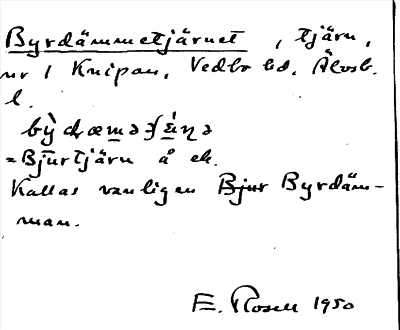 Byrdämmetjärnet, tjärn,
nr 1 Knipan, Vedbo hd, Älvsb.
l.
= Bjurtjärn å ek.
Kallas vanligen Byrdäm-
man.
E. Rosell 1950